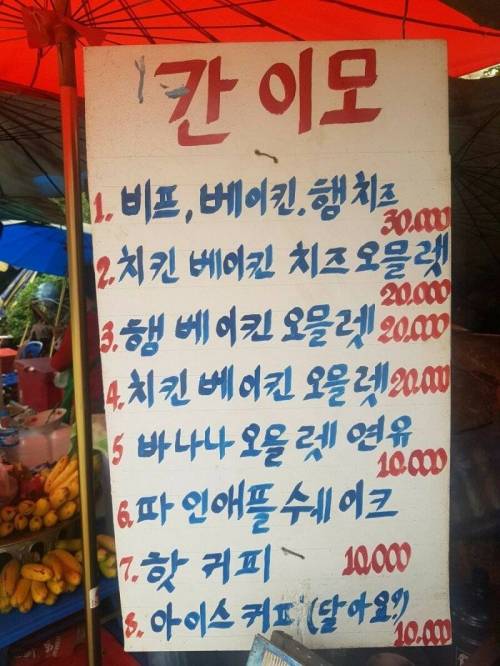 칸 이모
1. 비프, 베이킨. 햄치즈
30.000
2. 치킨 베이킨 치즈오믈렛
20.000
3. 햄 베이킨 오믈렛 20.000
4. 치킨 베이킨 오믈렛 20.000
5 바나나 오믈렛 연유
10.000
6. 파인애플 수웨이크
7. 핫 커피 10.000
8. 아이스커피 (달아요?)
10.000